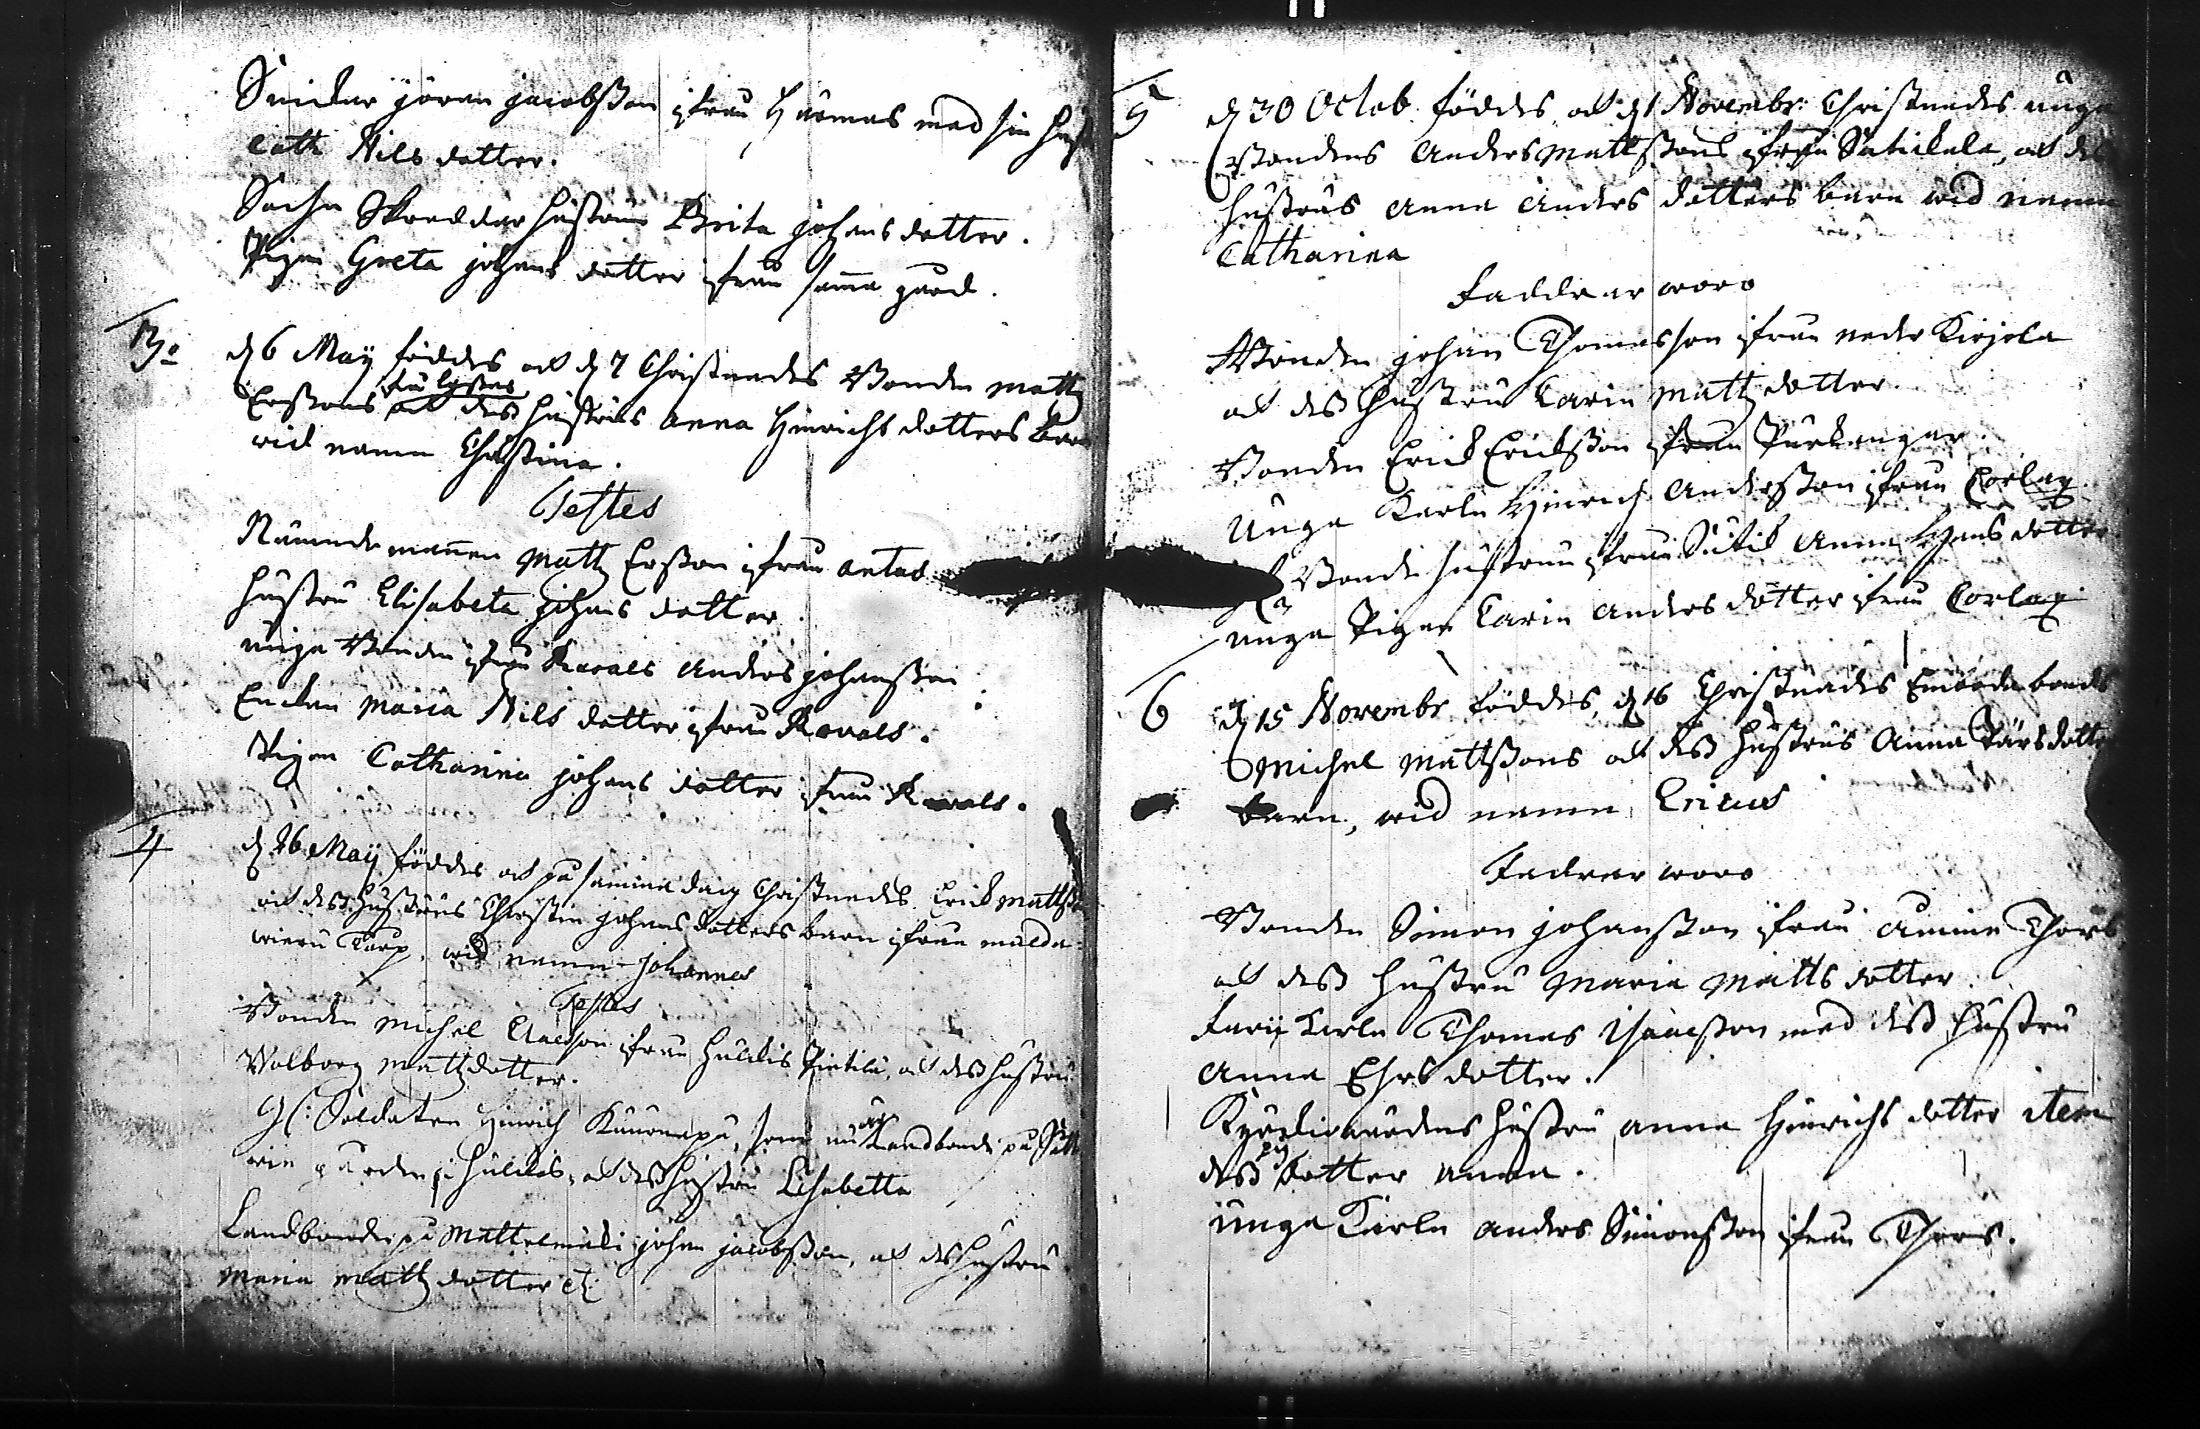 Smeden jöran jacobßon ifrån Harmas med sin hust
Cath Nils dotter.
Sochn Skreddar hustrun Brita johans dotter.
Pigan Greta johans dotter ifrån sama gård.
3o
d 6 Maij föddes och d 7 Christnades Bonden matz
Erssons och deß hustrus Anna Hinrichs dotters barn
wid namn Christina.
Testes
Nämndemannen Matz Erßon ifrån antas
hustru Elisabeta johans dotter.
unge Bonden ifrån Ravals Anders johanßon
Enkan Maria Nils dotter ifrån Ravals.
Pigan Catharina johans dotter ifrån Ravals.
4
d 26 Maij föddes och på samma dag Christnades Erick Mattßo
och deß hustrus Christin johans dotters barn ifrån
Torp, wid namn Johannes
Testes
Bonden Michel ifrån Pietilä, och deß hustru
Walborg Matzdotter.
Soldaten Hinrich som nu är Landbonde på
gården i och deß hustru Lisabetta
Landbonden på johan jacobßon, och deß hustru
Maria Matz dotter etc:
5
d 30 Octob föddes och d 1 Novembr: Christnades unga
Bondens Anders Mattßons ifrån och deß
hustrus Anna Anders dotters barn wid namn
Catharina
Faddrar woro
Bonden johan Thomasson ifrån neder Kirjola
och deß hustru Carin Matz dotter.
Bonden Erick Erickßon ifrån
Unga Karln Hinrich Anderßon ifrån Corlax
Bonde hustrun ifrån Anna Hans dotter
unga Pigan Carin Anders dotter ifrån Corlax
6
d 15 Novembr föddes, d 16 Christnades bonde
Michel Mattßons och deß hustrus Anna Pärs dotte
barn, wid namn Ericus
Fadrar woro
Bonden Simon johanßon ifrån Thors
och deß hustru Maria Matts dotter.
Karln Thomas Isaacßon med deß hustru
Anna Ehrs dotter.
hustru Anna Hinrichs dotter item
deß dotter Anna.
unga Karln Anders Simonßon ifrån Thors.